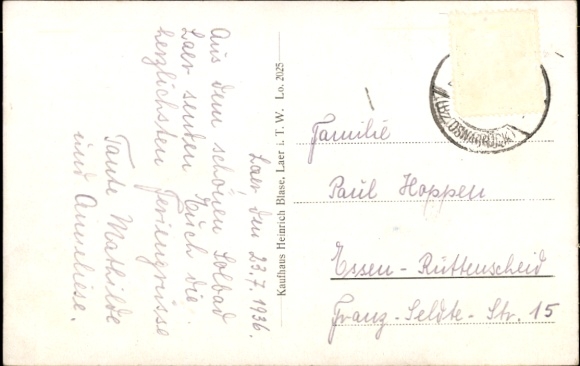 Laer, den 23.7.1936.
Aus dem schönen Solbad
Laer senden Euch die
herzlichsten Feriengrüsse
Tante Mathilde
und Anneliese.
Kaufhaus Heinrich Blase, Laer i. T. W. Lo. 2025
(BZ. OSNABRÜCK)
Familie
Paul Hoppen
Essen-Rüttenscheid
Franz-Seldte-Str. 15